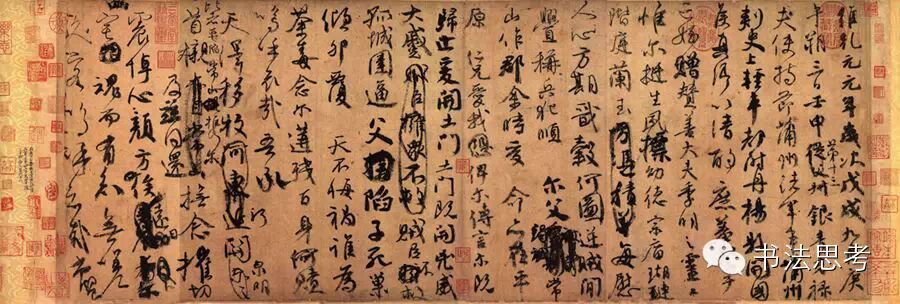 維乾元元年歲次戊戌九月庚
午朔三日壬申第十三叔從父銀青光祿
夫使持節蒲州諸軍事蒲州
刺史上輕車都尉丹楊縣開國
侯真卿以清酌庶羞祭于
亡姪贈贊善大夫季明之靈
惟爾挺生夙標幼德宗廟瑚璉
階庭蘭玉每慰
人心方期戩穀何圖逆賊閒
釁稱兵犯順爾父常
山作郡余時受命亦在平
原仁兄愛我俾爾傳言爾既
歸止爰開土門土門既開凶威
大蹙賊臣不救
孤城圍逼父陷子死巢
傾卵覆天不悔禍誰為
荼毒念爾遘殘百身何贖
嗚乎哀哉吾承
天澤移牧河關泉明
比者再陷常山攜爾
首櫬及茲同還撫念摧切
震悼心顏方俟遠日
宅魂而有知無嗟
久客嗚呼哀哉尚饗
书法思考